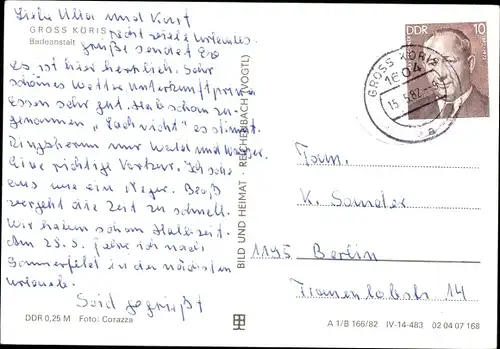 Liebe Ulla und Kurt
GROSS KÖRIS
recht viele Urlaubs
Badeanstalt
grüße sendet Eve
es ist hier herrlich. Sehr
schönes Wetter Unterkunft prima
essen sehr gut. Hab schon zu-
genommen „Lach nicht" es stimmt.
Ringsherum nur Wald und Wasser.
Eine richtige Vorkur. Ich sehe
aus wie ein Neger. Bloß
vergeht die Zeit zu schnell.
Wir haben schon Halbzeit.
Am 28.5. fahre ich nach
Sommerfeld in den nächsten
Urlaub.
Seid gegrüßt
DDR 0,25 M Foto: Corazza
BILD UND HEIMAT · REICHENBACH (VOGTL)
DDR 10
GROSS KÖRIS
1604
15.5.82
a
Fam.
K. Sander
1195 Berlin
14
A 1/B 166/82 IV-14-483 02 04 07 168